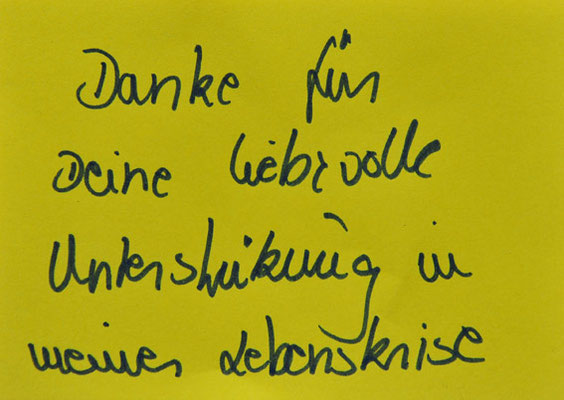 Danke für
Deine liebevolle
Unterstützung in
meiner Lebenskrise